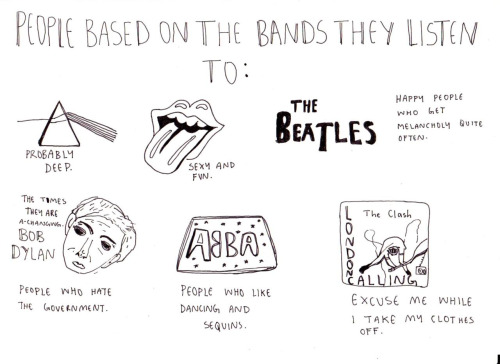 PEOPLE BASED ON THE BANDS THEY LISTEN
TO:
PROBABLY
DEEP.
SEXY AND
FUN.
THE
BEATLES
HAPPY PEOPLE
WHO GET
MELANCHOLY QUITE
OFTEN.
THE TIMES
THEY ARE
A-CHANGING.
BOB
DYLAN
PEOPLE WHO HATE
THE GOVERNMENT.
ABBA
PEOPLE WHO LIKE
DANCING AND
SEQUINS.
The Clash
LONDON
CALLING
EXCUSE ME WHILE
I TAKE MY CLOTHES
OFF.